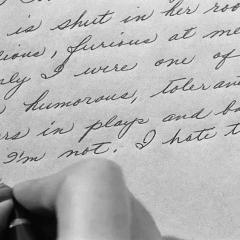 is shut in her roo
ious, furious at me
nly I were one of
humorous, toleran
rs in plays and bo
I'm not. I hate t